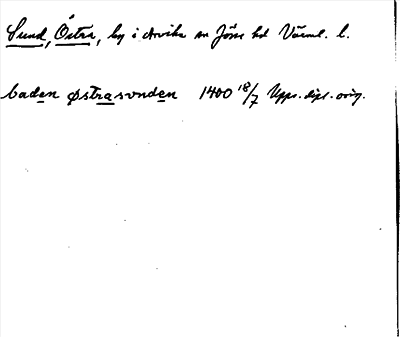 Sund, Östra, by i Arvika sn Jöse hd Värml. l.
baden østrasonden 1400 18/7 Upps. dipl. orig.